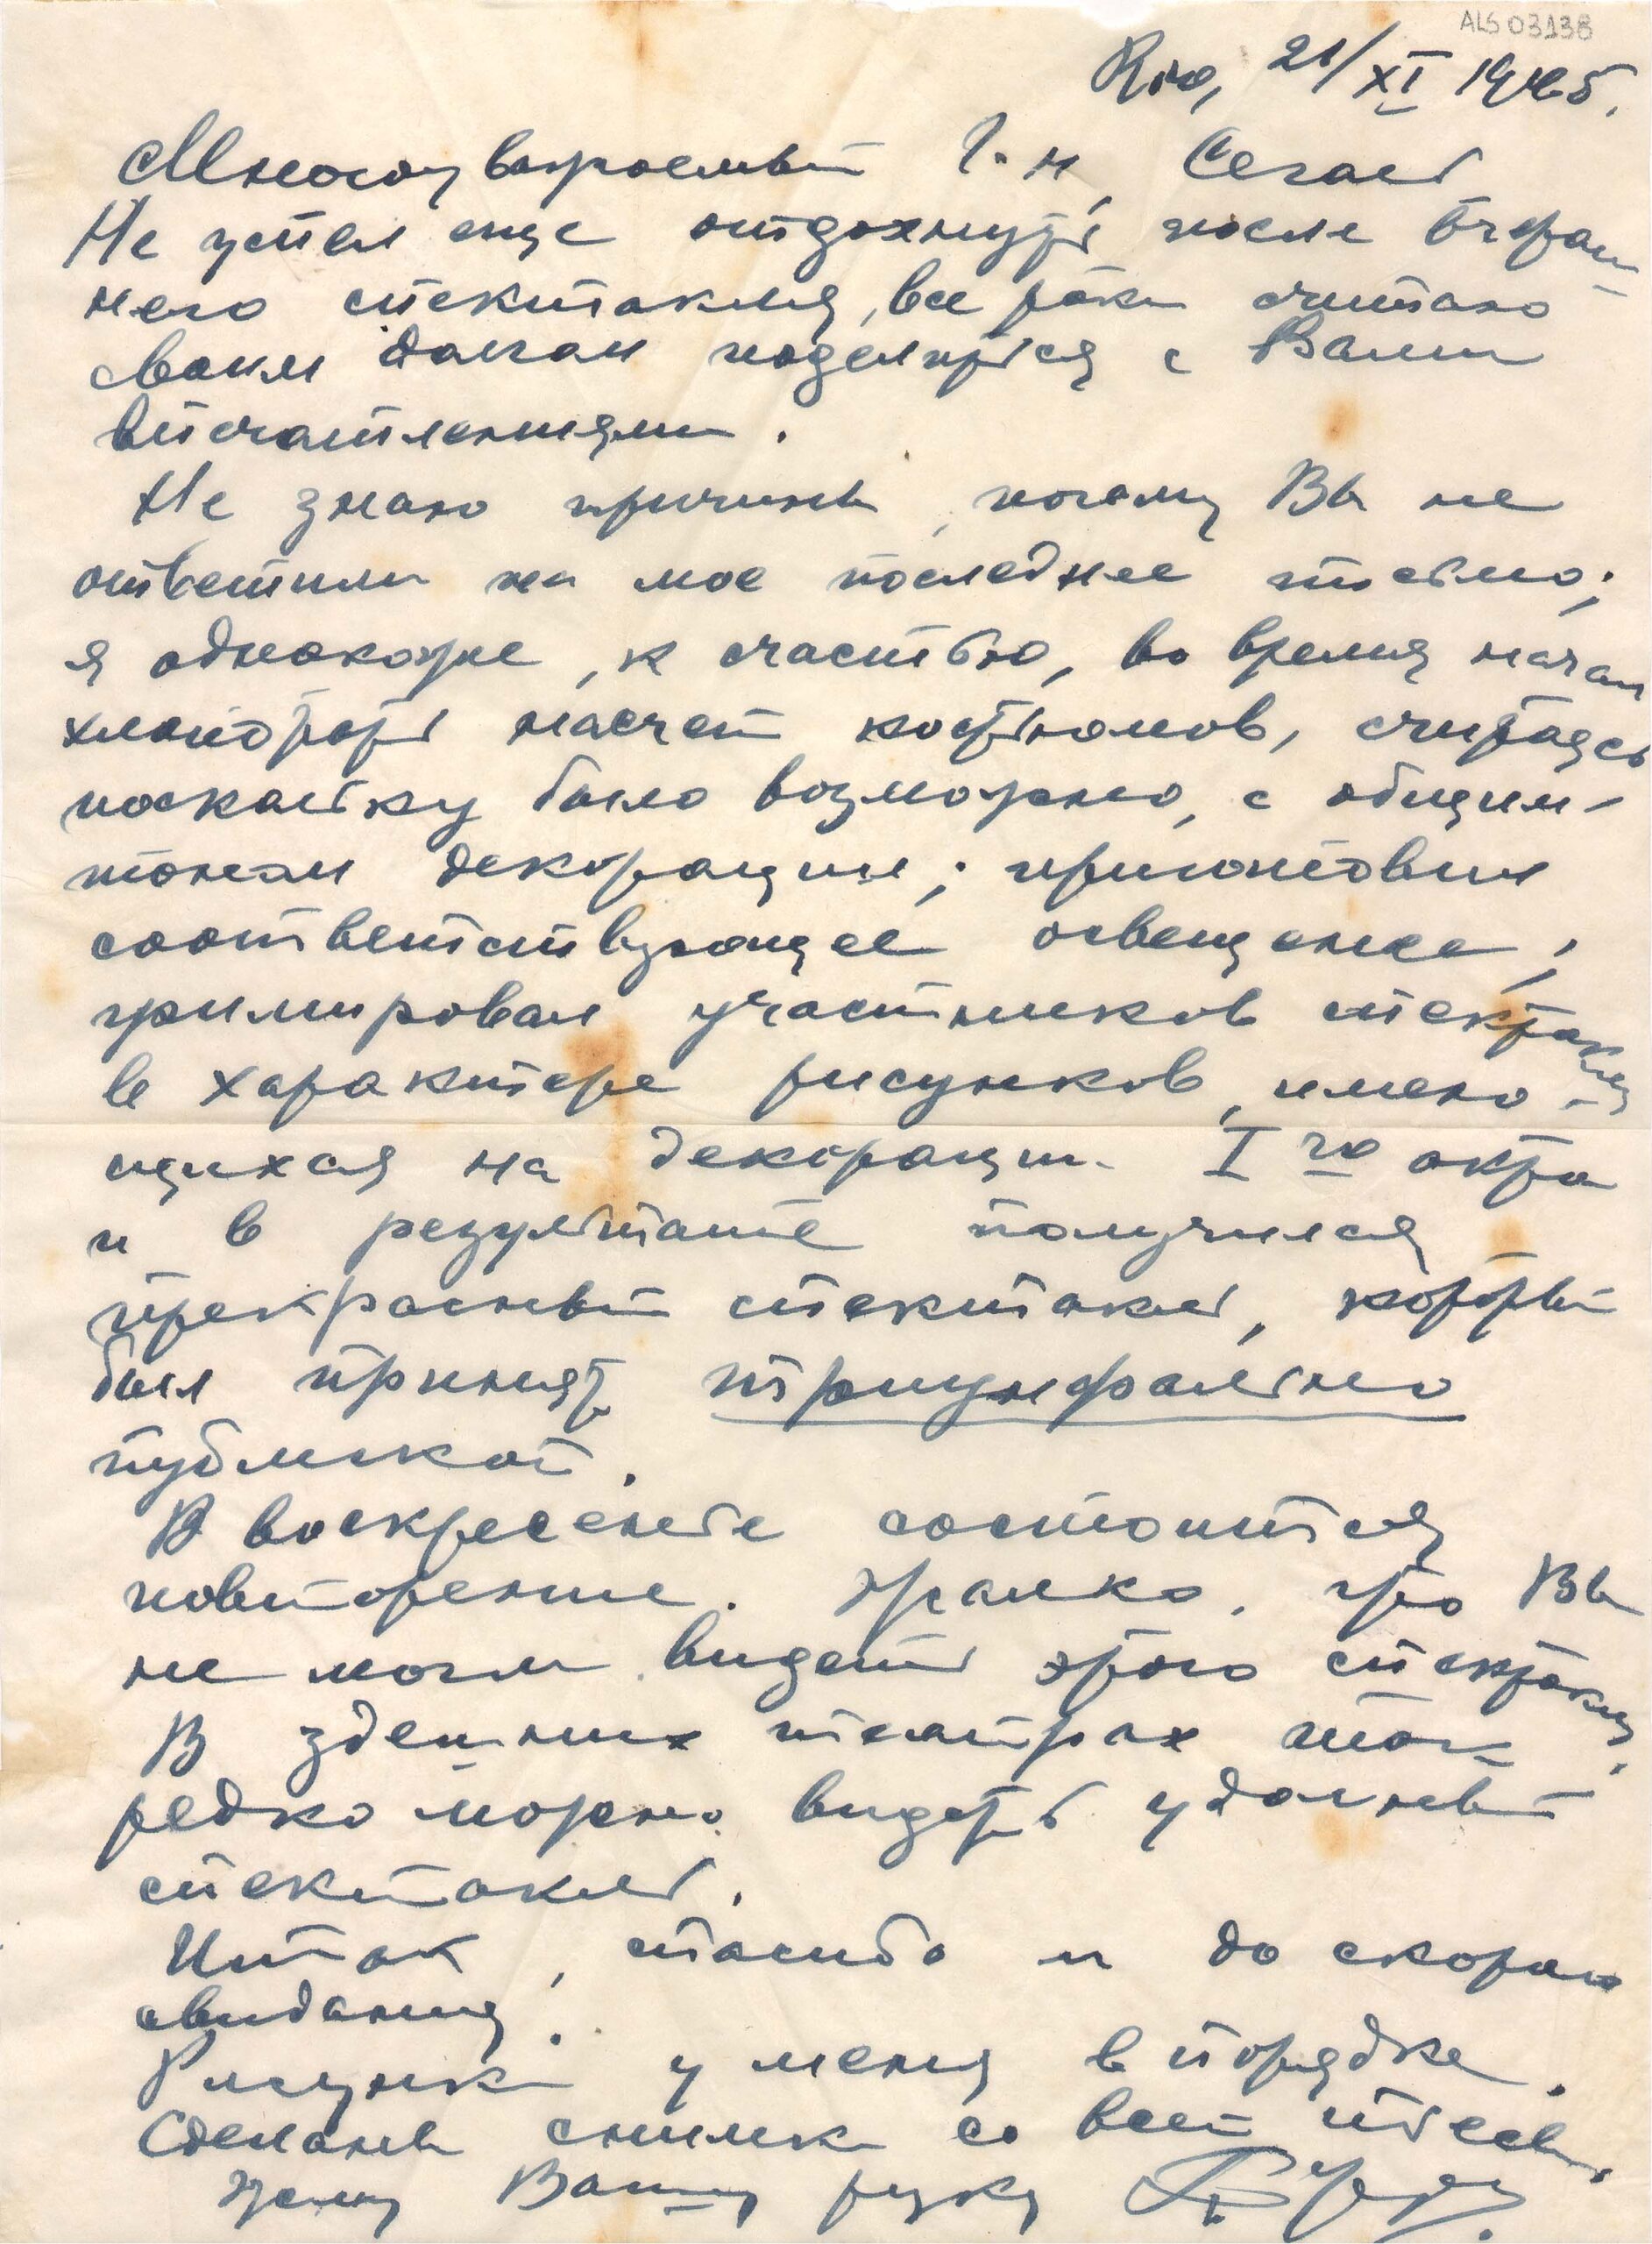 ALS 03138
Rio, 21/XI 1945.
Многоуважаемый Г-н Сегал
Не успел еще отдохнуть после вчераш-
него спектакля, все таки считаю
своим долгом поделиться с Вами
впечатлениями.
Не знаю причины, почему Вы не
ответили на мое последнее письмо;
я однакоже, к счастью, во время начал
хлопотать насчет костюмов, считаясь
поскольку было возможно, с общим-
тоном декорации; приготовил
соответствующее освещение;
гримировал участников спектакля
в характере рисунков, имею-
щихся на декорации I го акта
и в результате получился
прекрасный спектакль, который
был принят триумфально
публикой.
В воскресенье состоится
повторение. Жалко, что Вы
не могли видеть этого спектакля.
В здешних театрах так
редко можно видеть удачный
спектакль.
Итак, спасибо и до скорого
свидания.
Рисунки у меня в порядке.
Сделаны снимки со всей пьесы.
Жму Вашу руку